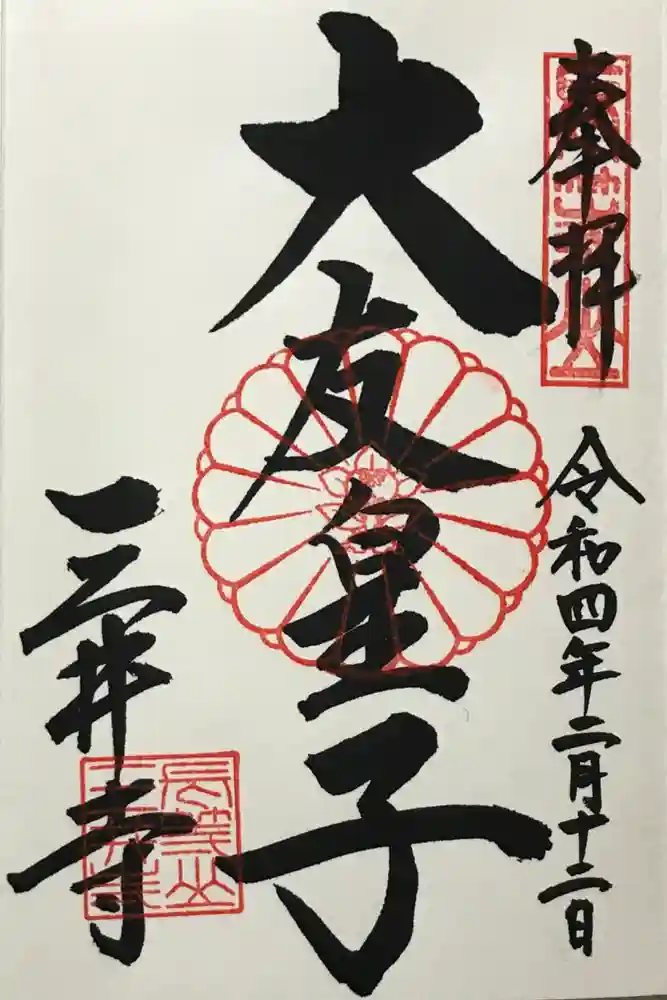 奉拝
令和四年二月十二日
大友皇子
三井寺